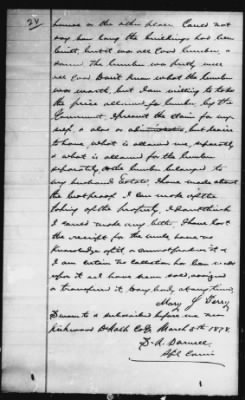 24
houses on the other place Could not
say how long the buildings had been
built, but it was all Good lumber, &
sound. The lumber was partly
all Good Don't know what the lumber
was worth, but I am willing to take
the price allowed for lumber by the
Government, I present the claim for my
self, & also as but desire
to have, what is allowed me, seperately
& what is allowed for the lumber
seperately, as the lumber belonged to
my husbands Estate, I have made about
the best proof I can make of the
taking of the property, I don't think
I could make any better. I have lost
the receipt for the mule, have no
knowledge of it, & can not give it &
I am certain no collection has been made
upon it nor have been sold, assigned
or transferred it, to any body at any time,
Mary J Terry
Sworn to & subscribed before me near
Kirkwood DeKalb Co Ga March 5th 1878.
D. A. Darnell
Spl Comr